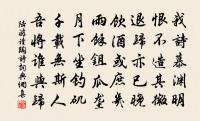 我詩慕淵明
恨不造其微
退歸亦已晚
飲酒或庶幾
雨餘鋤瓜壟
月下坐釣磯
千載無斯人
吾將誰與歸
陸游讀陶詩詞典網集